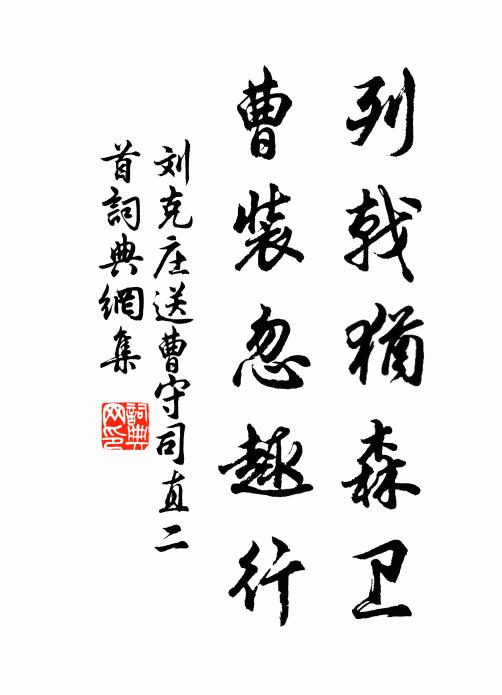 列戟犹森卫
曹装忽趣行
刘克庄送曹守司直二
首詞典網集
詞典
网印